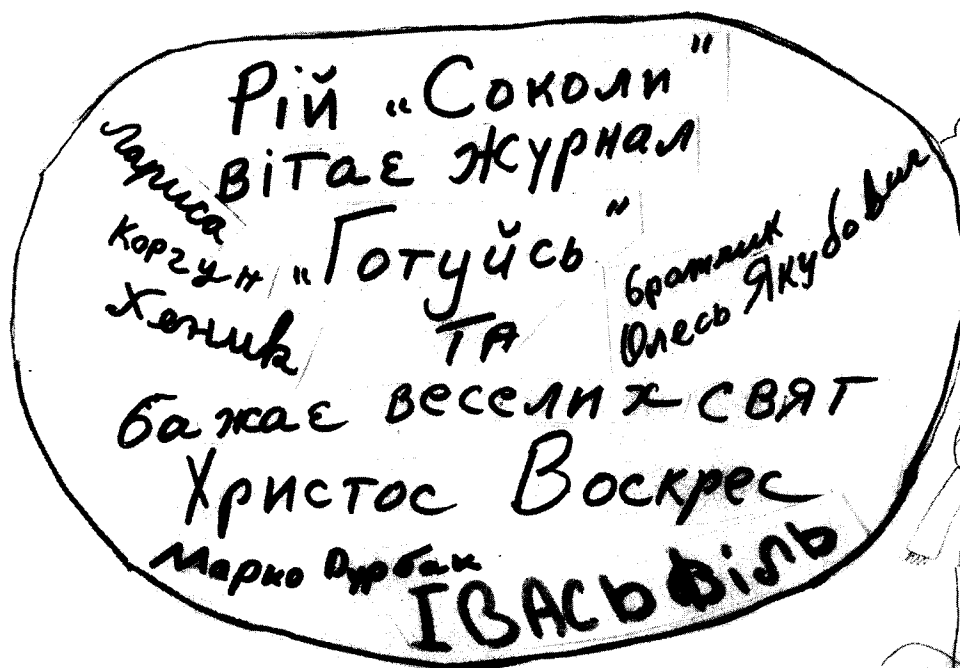 Рій „Соколи"
вітає журнал
„Готуйсь"
та
бажає веселих свят
Христос Воскрес
Лариса
Коргун
Хеник
братчик
Олесь Якубович
Марко Дурбак
ІВАСЬ Філь